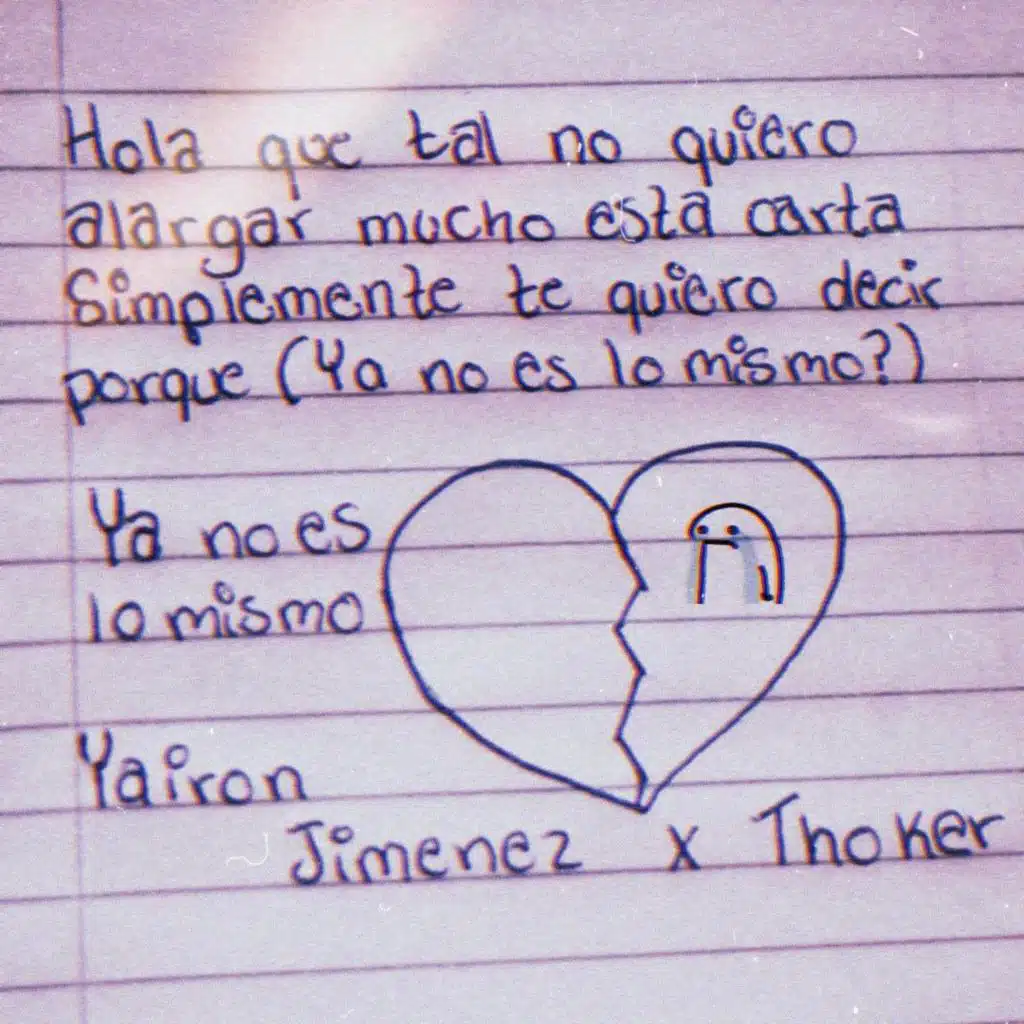 Hola que tal no quiero
alargar mucho esta carta
Simplemente te quiero decir
porque (Ya no es lo mismo?)
Ya no es
lo mismo
Yairon
Jimenez x Thoker